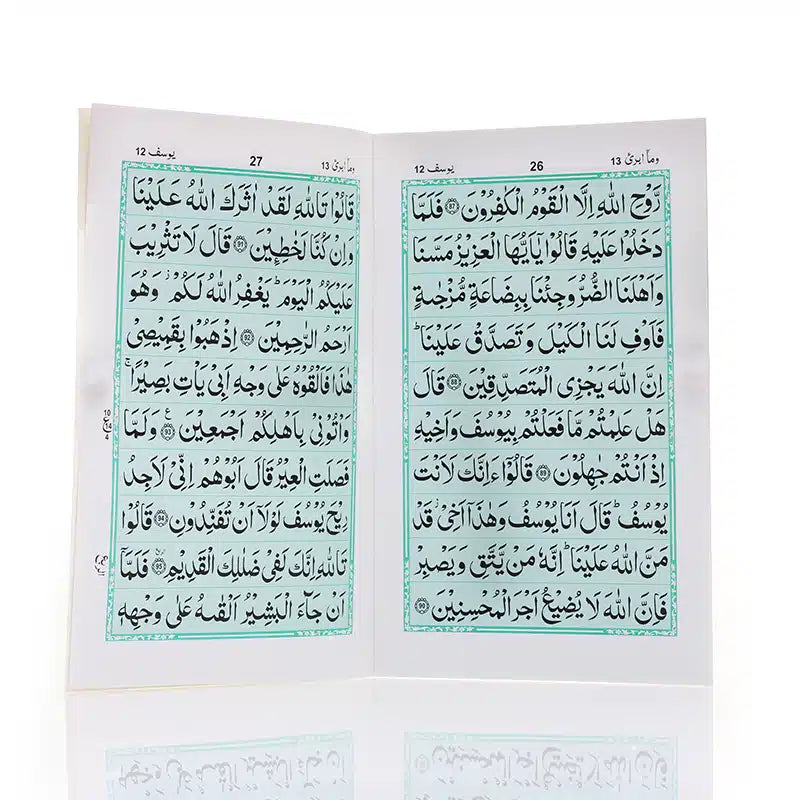 وما ابرئ 13
26
يوسف 12
رَّوْحِ اللّٰهِ اِلَّا الْقَوْمُ الْكٰفِرُوْنَ ۝87 فَلَمَّا
دَخَلُوْا عَلَيْهِ قَالُوْا يٰۤاَيُّهَا الْعَزِيْزُ مَسَّنَا
وَاَهْلَنَا الضُّرُّ وَجِئْنَا بِبِضَاعَةٍ مُّزْجٰىةٍ
فَاَوْفِ لَنَا الْكَيْلَ وَتَصَدَّقْ عَلَيْنَا ؕ
اِنَّ اللّٰهَ يَجْزِى الْمُتَصَدِّقِيْنَ ۝88 قَالَ
هَلْ عَلِمْتُمْ مَّا فَعَلْتُمْ بِيُوْسُفَ وَاَخِيْهِ
اِذْ اَنْتُمْ جٰهِلُوْنَ ۝89 قَالُوْۤا ءَاِنَّكَ لَاَنْتَ
يُوْسُفُ ؕ قَالَ اَنَا يُوْسُفُ وَهٰذَاۤ اَخِىْ ز قَدْ
مَنَّ اللّٰهُ عَلَيْنَا ؕ اِنَّهٗ مَنْ يَّتَّقِ وَيَصْبِرْ
فَاِنَّ اللّٰهَ لَا يُضِيْعُ اَجْرَ الْمُحْسِنِيْنَ ۝90
وما ابرئ 13
27
يوسف 12
قَالُوْا تَاللّٰهِ لَقَدْ اٰثَرَكَ اللّٰهُ عَلَيْنَا
وَاِنْ كُنَّا لَخٰطِـِٕيْنَ ۝91 قَالَ لَا تَثْرِيْبَ
عَلَيْكُمُ الْيَوْمَ ؕ يَغْفِرُ اللّٰهُ لَكُمْ ز وَهُوَ
اَرْحَمُ الرّٰحِمِيْنَ ۝92 اِذْهَبُوْا بِقَمِيْصِىْ
هٰذَا فَاَلْقُوْهُ عَلٰى وَجْهِ اَبِىْ يَاْتِ بَصِيْرًا ۚ
وَاْتُوْنِىْ بِاَهْلِكُمْ اَجْمَعِيْنَ ۝93 ع وَلَمَّا
فَصَلَتِ الْعِيْرُ قَالَ اَبُوْهُمْ اِنِّىْ لَاَجِدُ
رِيْحَ يُوْسُفَ لَوْلَاۤ اَنْ تُفَنِّدُوْنِ ۝94 قَالُوْا
تَاللّٰهِ اِنَّكَ لَفِىْ ضَلٰلِكَ الْقَدِيْمِ ۝95 فَلَمَّاۤ
اَنْ جَآءَ الْبَشِيْرُ اَلْقٰىهُ عَلٰى وَجْهِهٖ